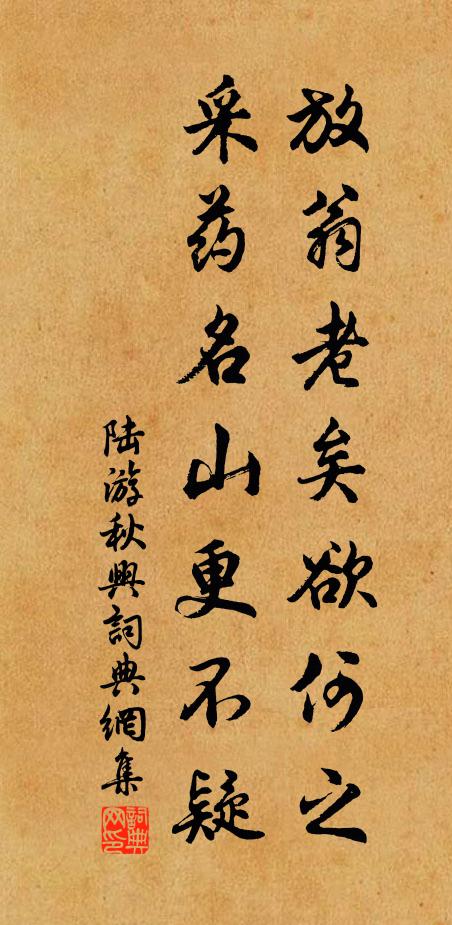 放翁老矣欲何之
采药名山更不疑
陆游秋興詞典網集
詞典网印